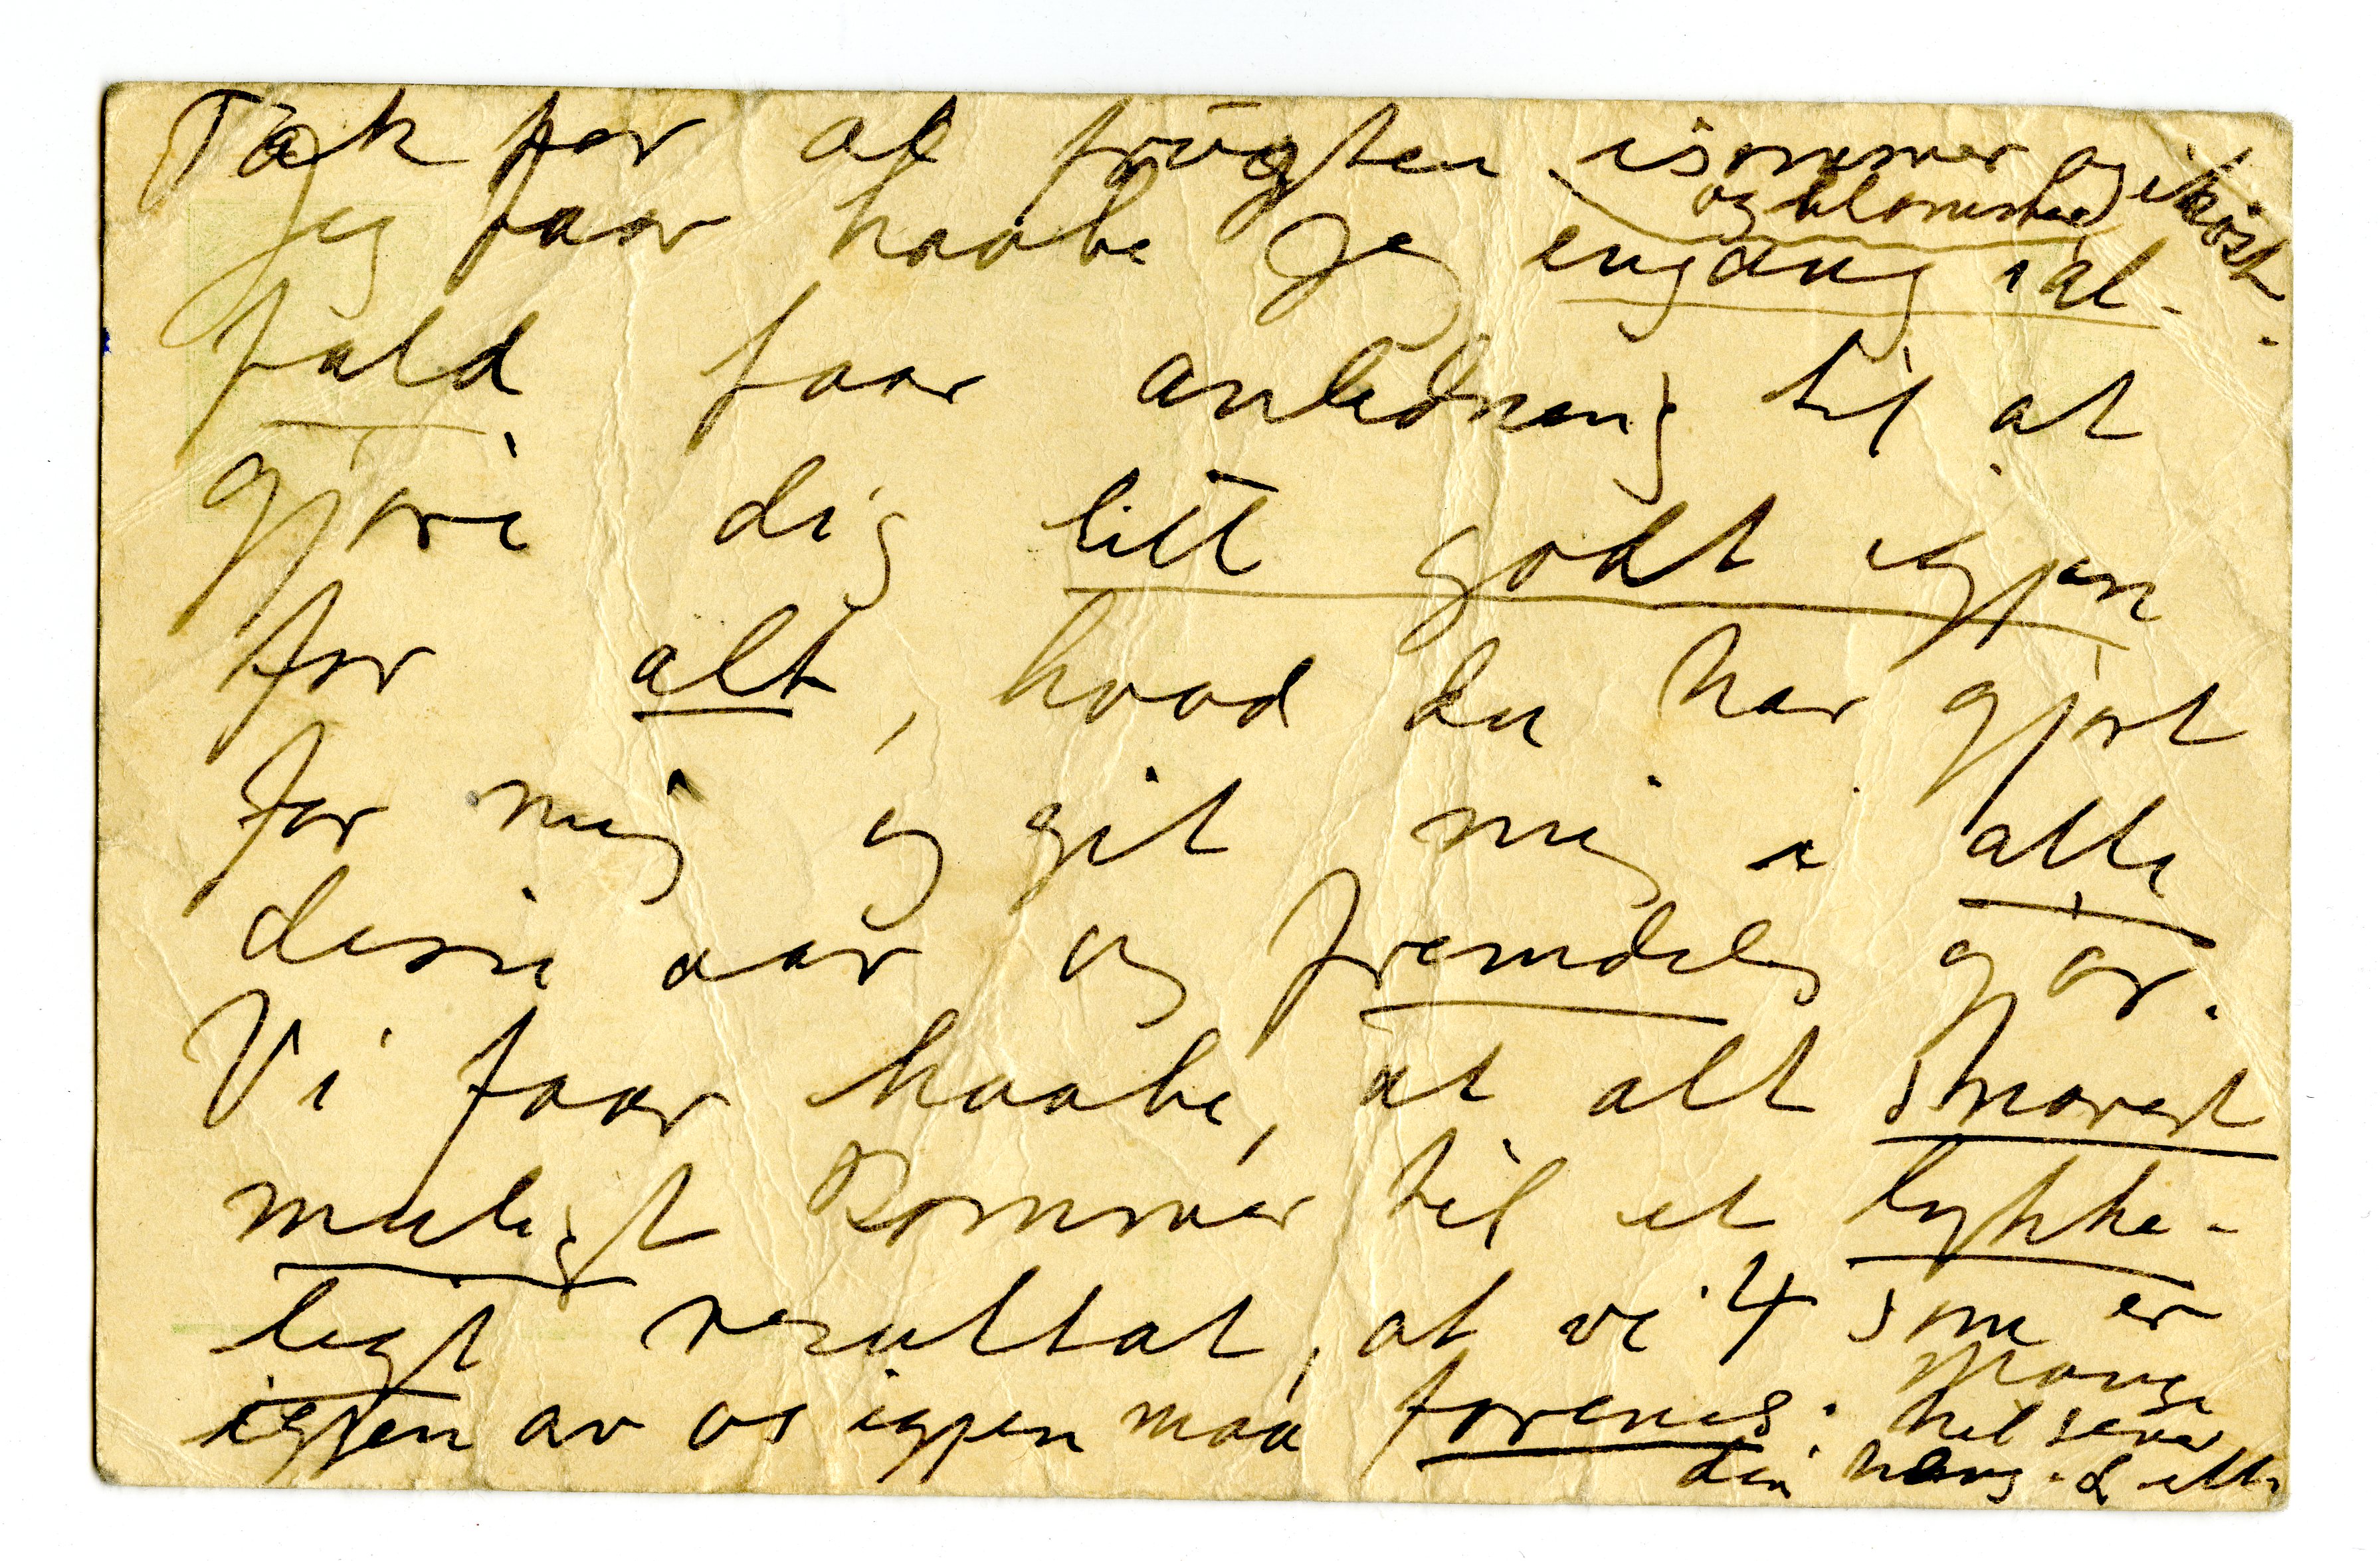 Tak for al frugten isommer og ihöst.
og blomster
Jeg faar haabe Jeg engang ial-
fald faar anledning til at
gjöre dig litt godt igjen
for alt, hvad du har gjort
for mig og git mig i alle
disse aar og fremdeles gjör.
Vi faar haabe, at alt snarest
muligt kommer til et lykke-
ligt resultat, at vi 4 som er
igjen av os igjen maa forenes.
Mange
hilsener
din